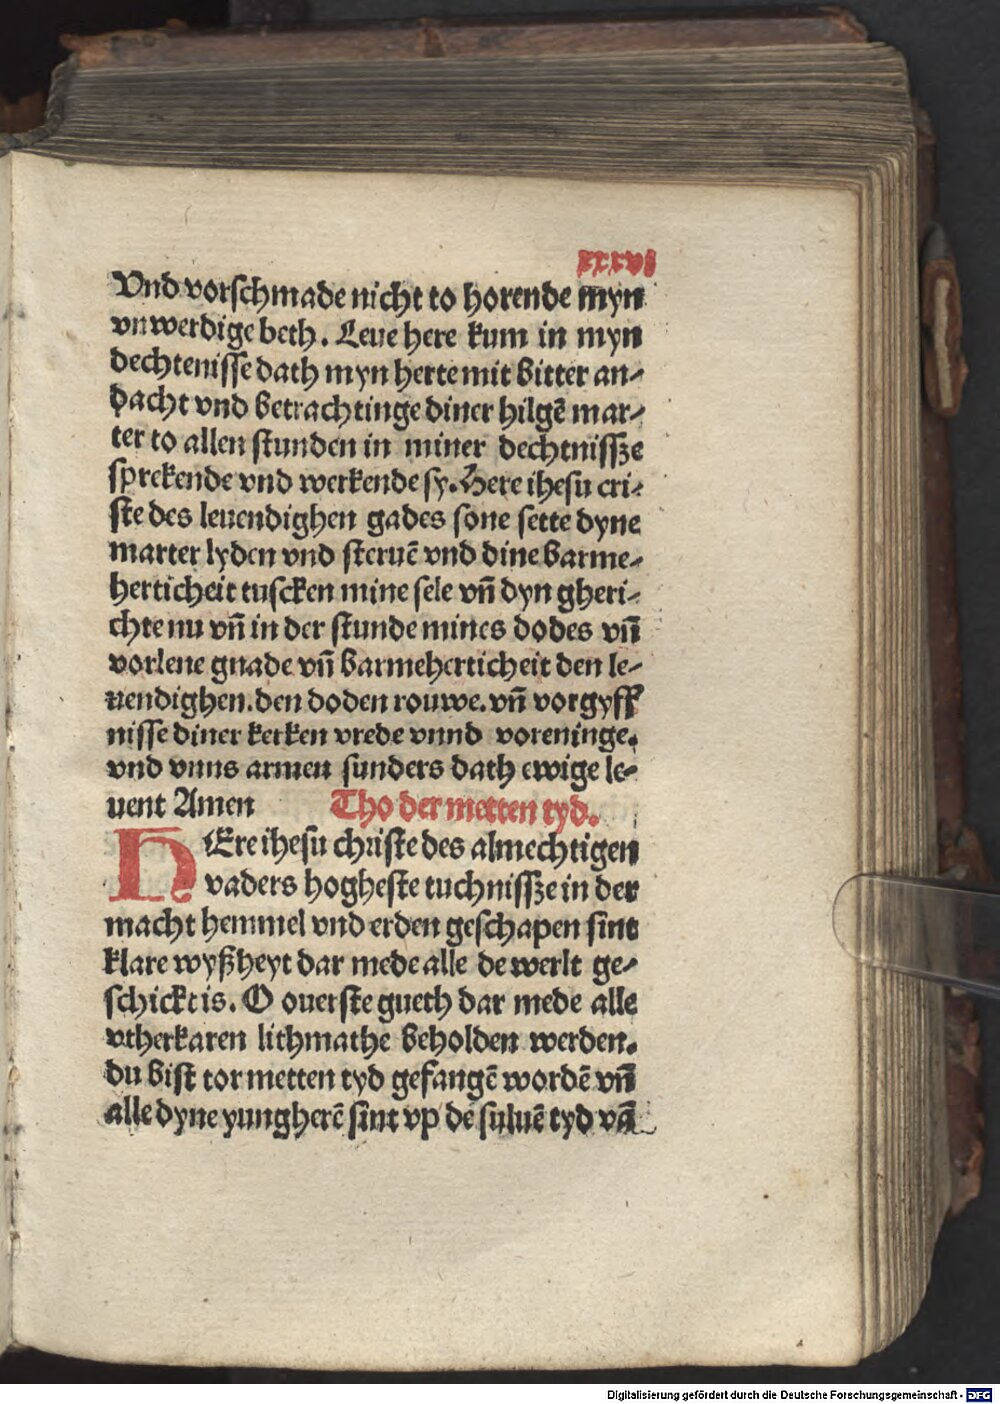 xxxvi
Vnd vorschmade nicht to horende myn
vnwerdige beth. Leue here kum in myn
dechtenisse dath myn herte mit bitter an-
dacht vnd betrachtinge diner hilgē mar-
ter to allen stunden in miner dechtnissze
sprekende vnd werkende sy. Here ihesu cri-
ste des leuendighen gades sone sette dyne
marter lyden vnd steruē vnd dine barme-
herticheit tuscken mine sele vn̄ dyn gheri-
chte nu vn̄ in der stunde mines dodes vn̄
vorlene gnade vn̄ barmeherticheit den le-
uendighen. den doden rouwe. vn̄ vorgyff
nisse diner kerken vrede vnnd voreninge.
vnd vnns armen sunders dath ewige le-
uent Amen Tho der metten tyd.
HEre ihesu christe des almechtigen
vaders hogheste tuchnissze in der
macht hemmel vnd erden geschapen sint
klare wyßheyt dar mede alle de werlt ge-
schickt is. O ouerste gueth dar mede alle
vtherkaren lithmathe beholden werden.
du bist tor metten tyd gefangē wordē vn̄
alle dyne yungherē sint vp de suluē tyd vā
Digitalisierung gefördert durch die Deutsche Forschungsgemeinschaft - DFG